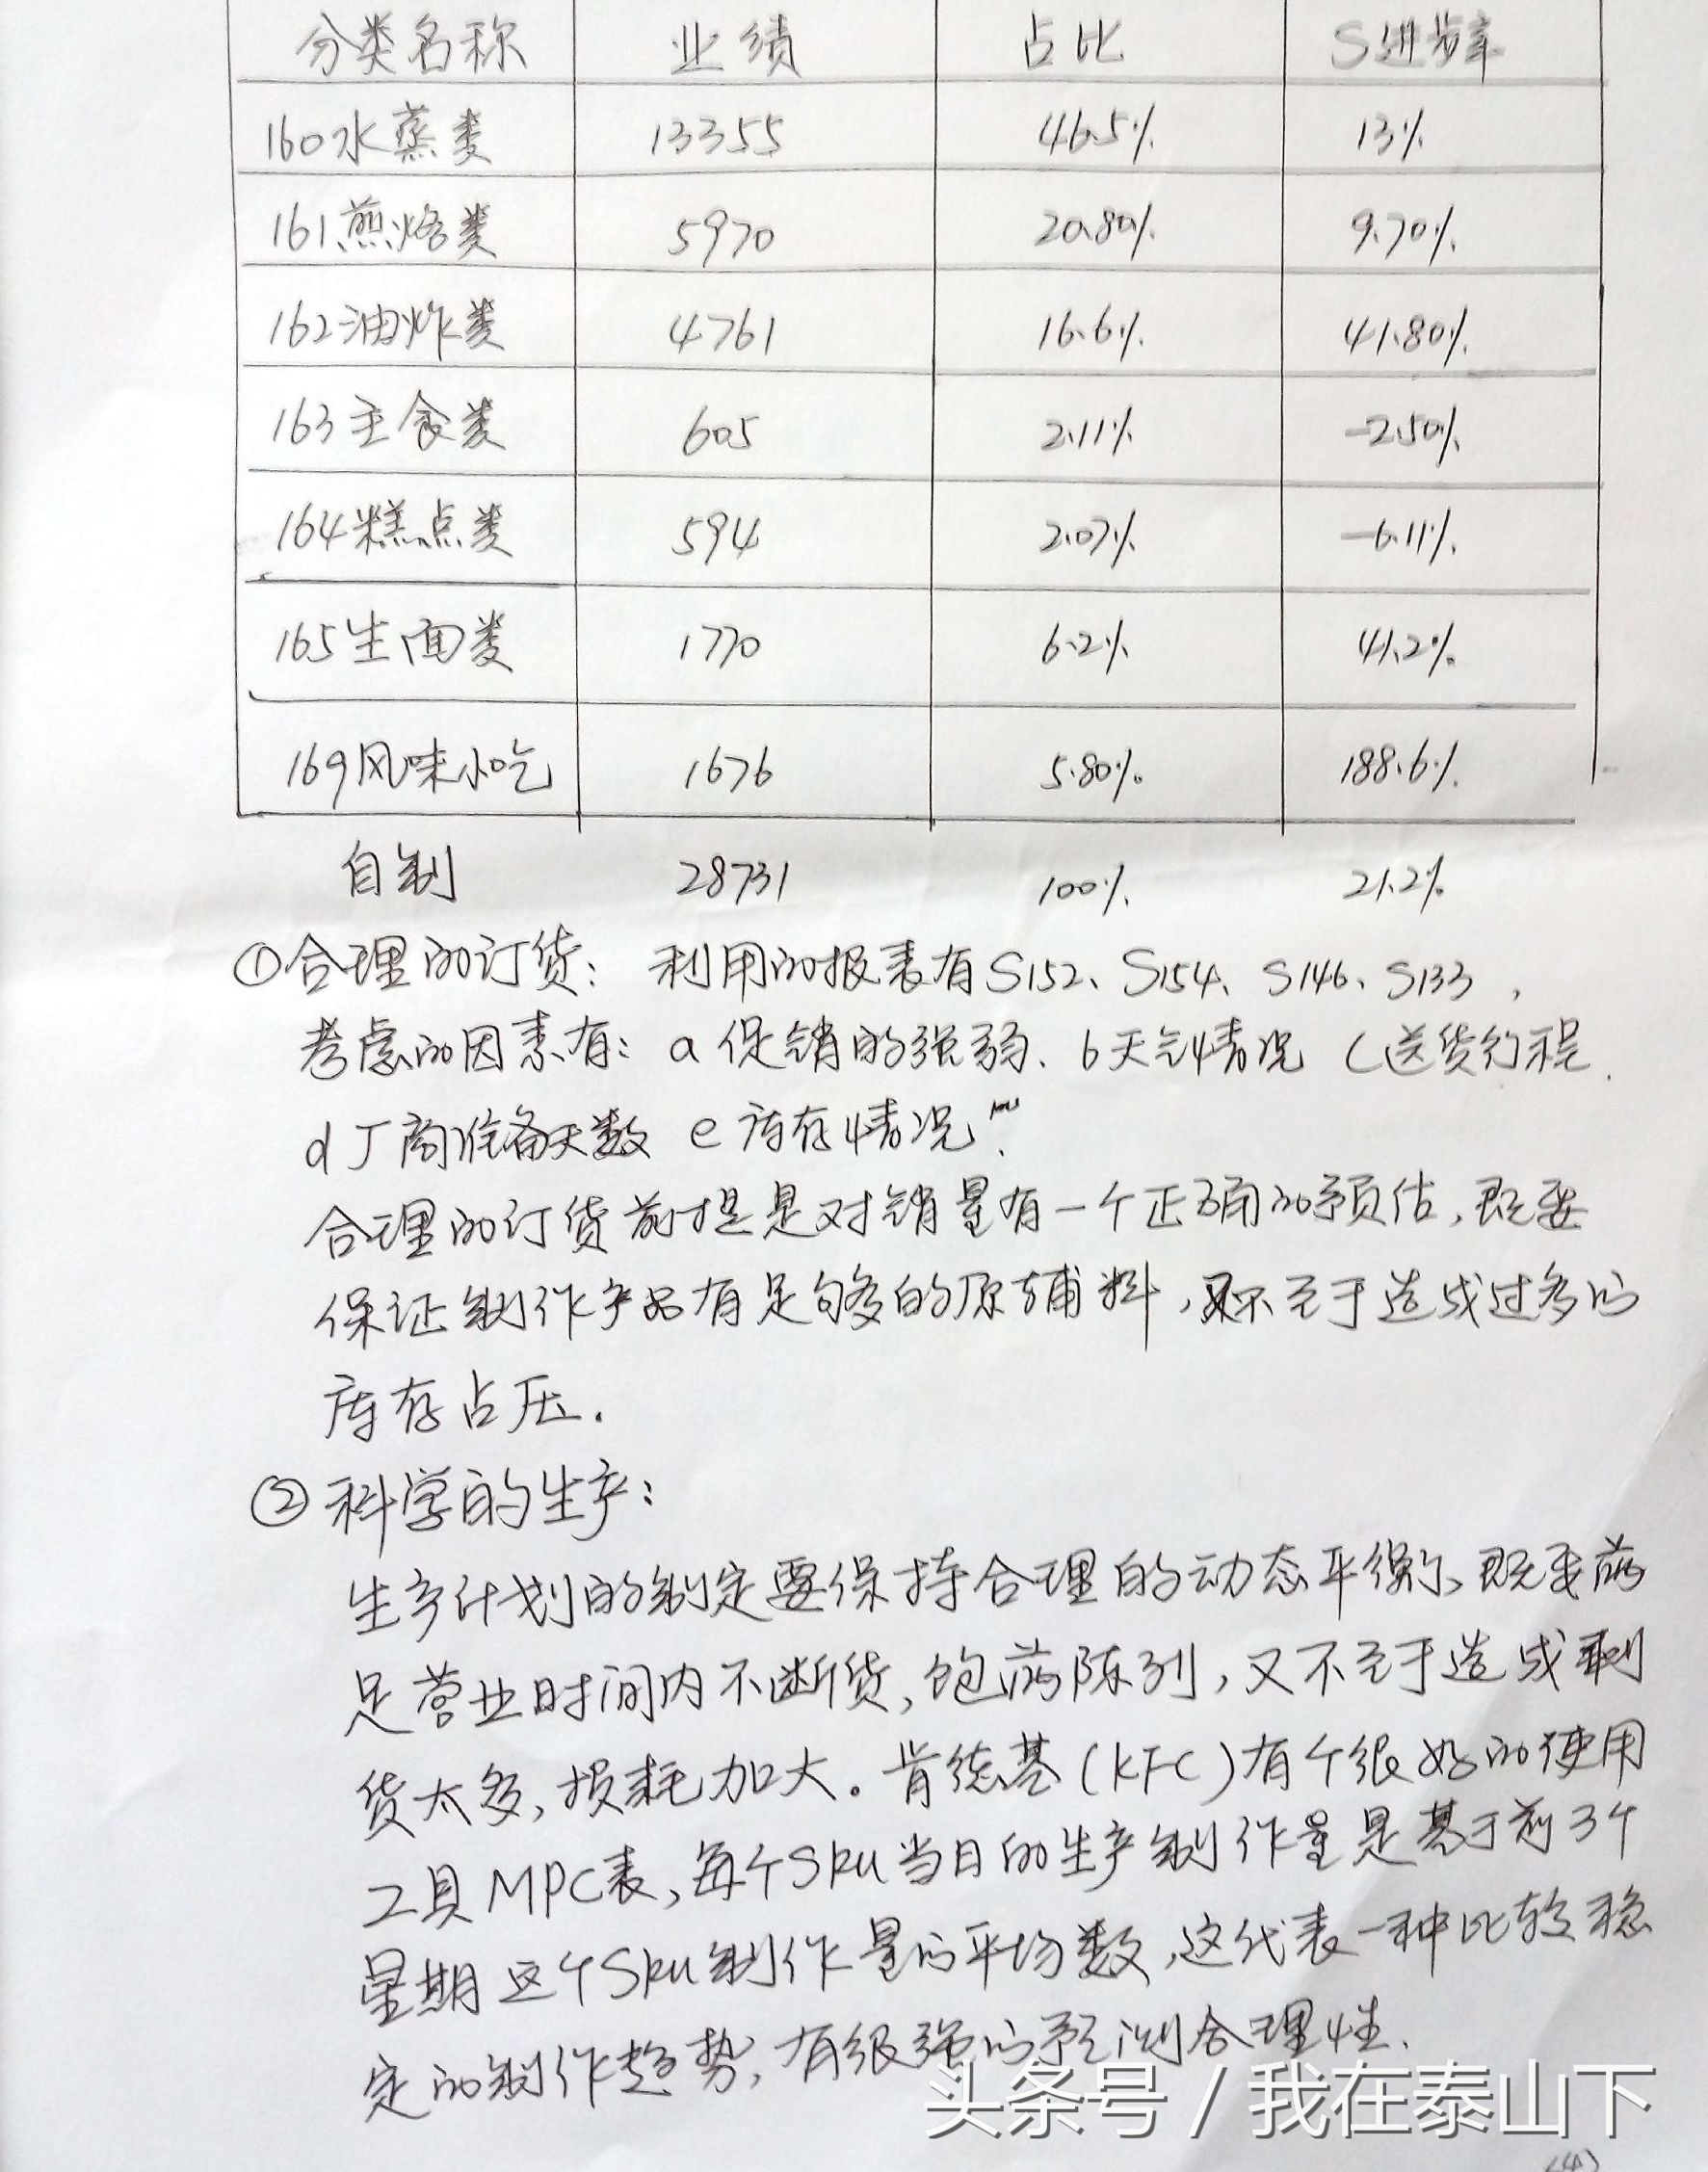 分类名称 业绩 占比 S进步率
160水蒸类 13355 46.5% 13%
161煎烙类 5970 20.80% 9.70%
162油炸类 4761 16.6% 41.80%
163主食类 605 2.11% -2.50%
164糕点类 594 2.07% -6.11%
165生面类 1770 6.2% 41.2%
169风味小吃 1676 5.80% 188.6%
自制 28731 100% 21.2%
①合理的订货：利用的报表有S152、S154、S146、S133，
考虑的因素有：a促销的强弱、b天气情况 c送货行程
d厂商准备天数 e库存情况
合理的订货前提是对销量有一个正确的预估，既要
保证制作产品有足够的原辅料，又不至于造成过多的
库存占压.
②科学的生产：
生产计划的制定要保持合理的动态平衡、既要满
足营业时间内不断货，饱满陈列，又不至于造成剩
货太多，损耗加大。肯德基(KFC)有个很好的使用
工具MPC表，每个Sku当日的生产制作量是基于前3个
星期这个Sku制作量的平均数，这代表一种比较稳
定的制作趋势，有很强的预测合理性.
头条号 / 我在泰山下
(4)